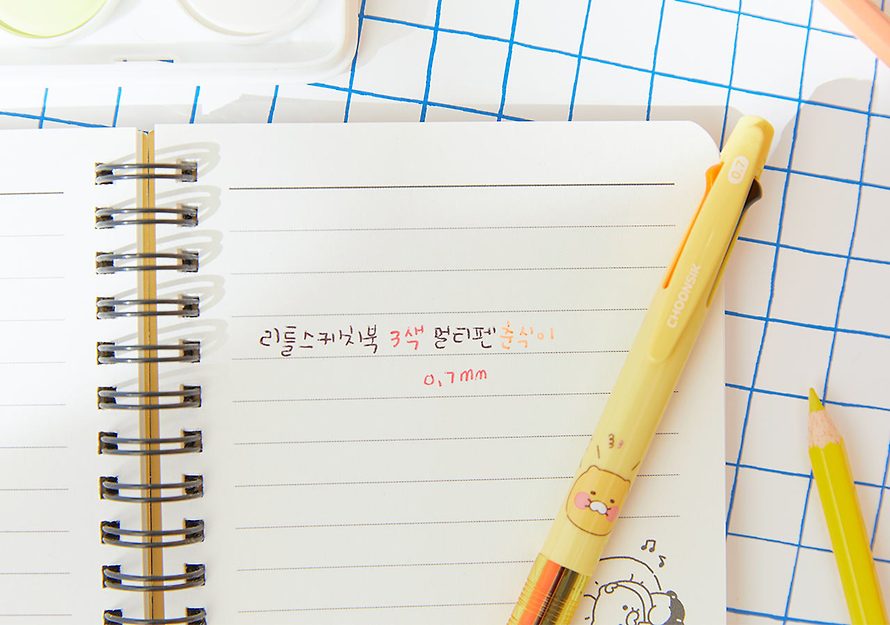 리틀스케치북 3색 멀티펜 춘식이
0.7mm
0.7
CHOONSIK